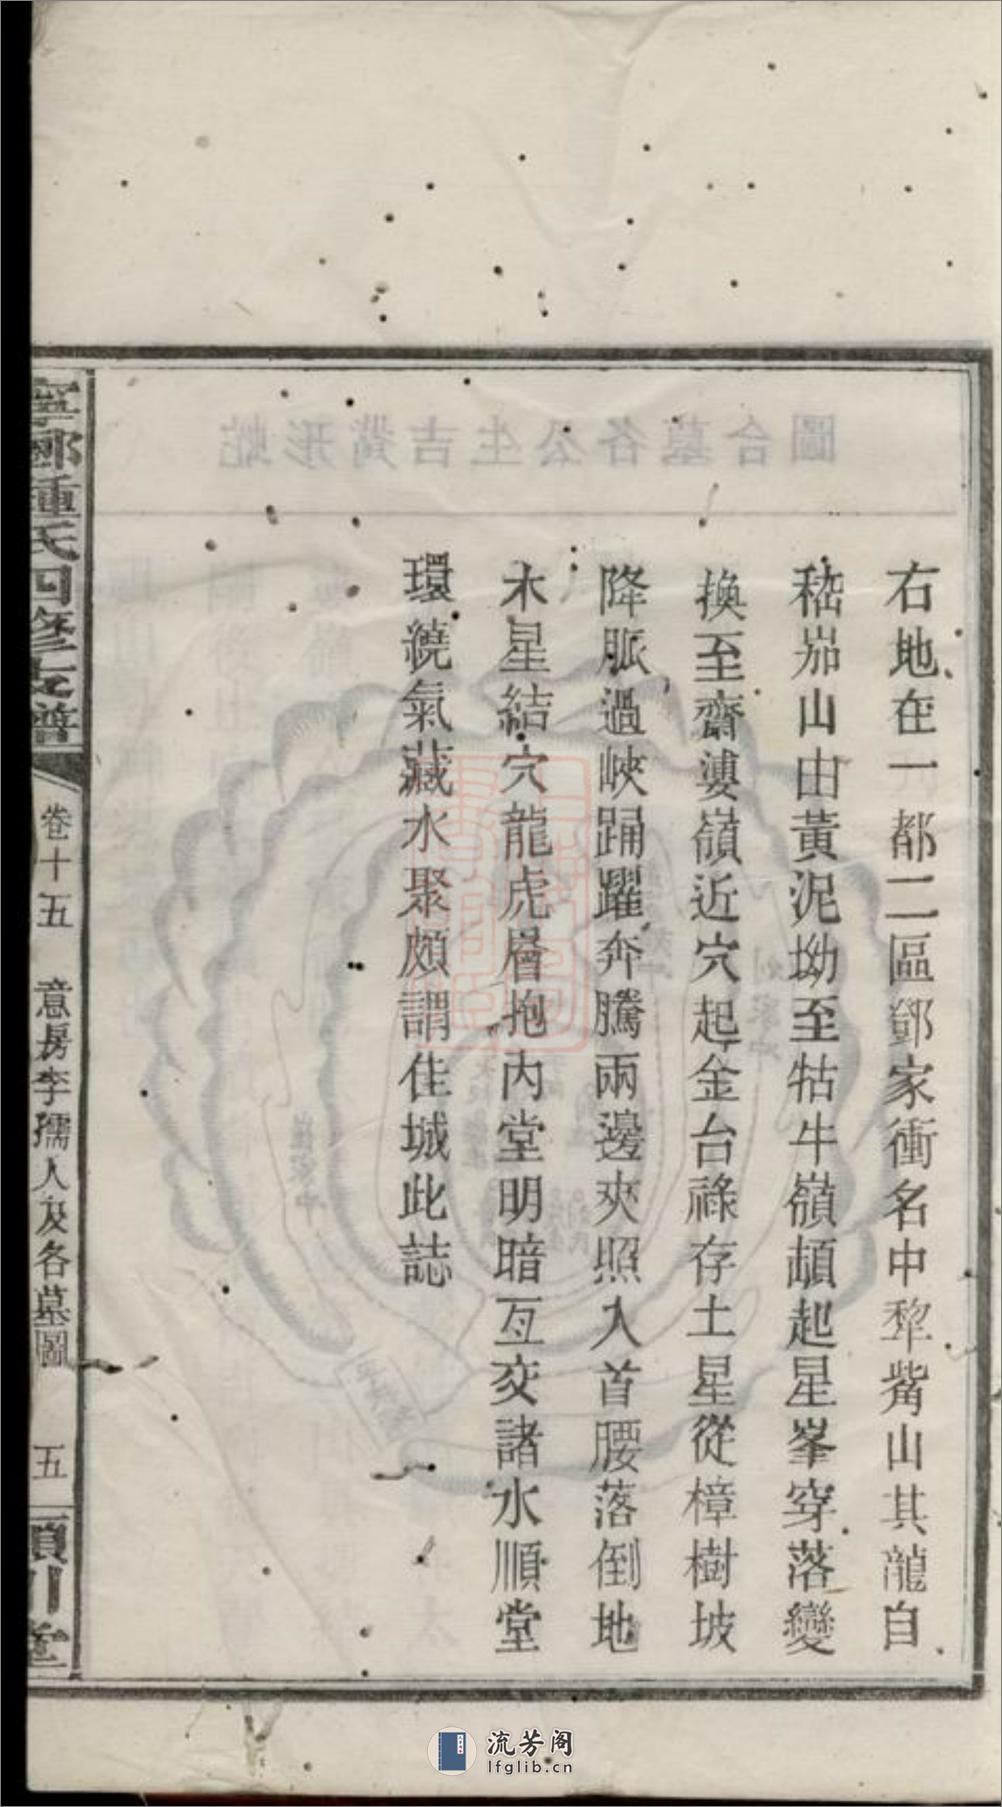 右地在一都二區鄧家衝名中犂觜山其龍自
嵇茄山由黃泥坳至牯牛嶺頓起星峯穿落變
換至齋婆嶺近穴起金台祿存土星從樟樹坡
降脈過峽踊躍奔騰兩邊夾照入首腰落倒地
木星結穴龍虎層抱內堂明暗互交諸水順堂
環繞氣藏水聚頗謂佳城此誌
寧鄉鍾氏四修支譜
卷十五 意房李孺人及各墓圖 五
潁川堂
蛇形觜吉生公各墓合圖
流芳阁
lfglib.cn